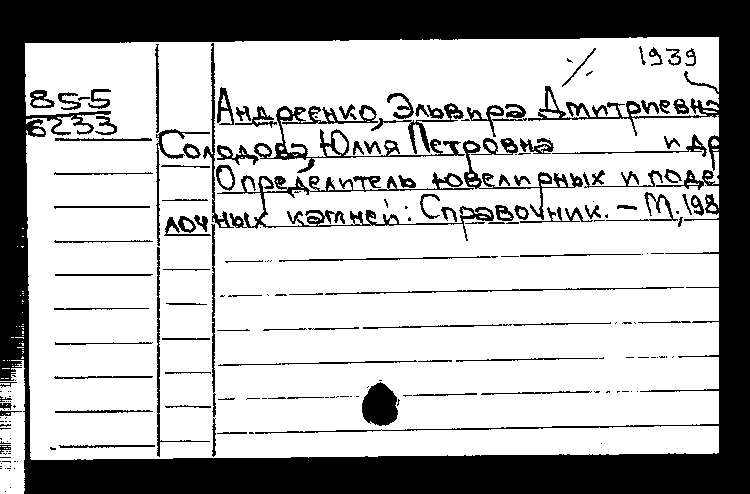 1939
85-5
6233
Андреенко, Эльвира Дмитриевна
Солодова, Юлия Петровна и др
Определитель ювелирных и поде-
лочных камней: Справочник. – М., 198